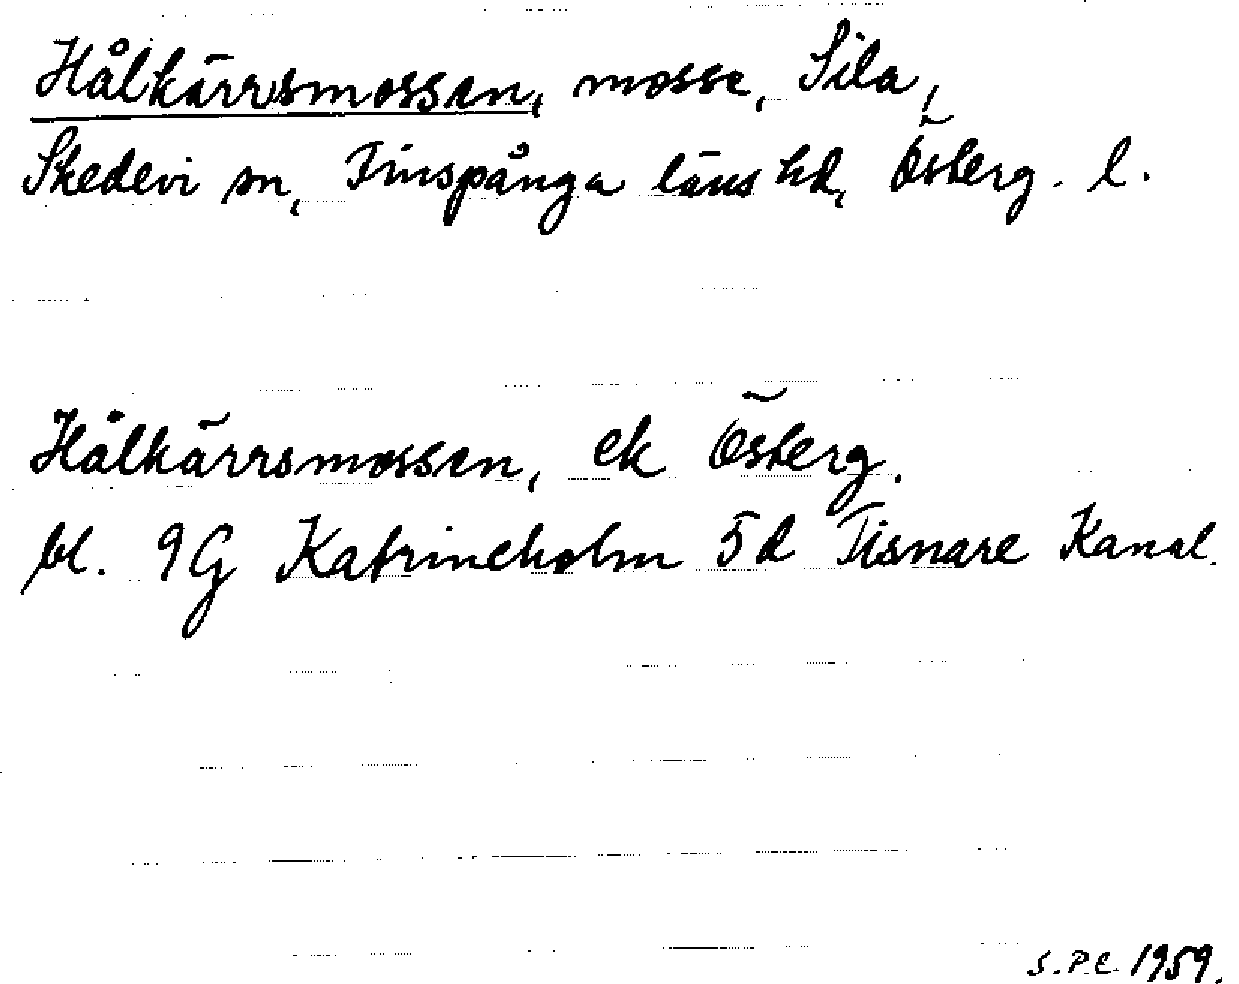 Hålkärrsmossen, mosse, Sila,
Skedevi sn, Finspånga läns hd, Österg. l.
Hålkärrsmossen, ek Österg.
bl. 9G Katrineholm 5d Tisnare Kanal.
S.P.C. 1959.